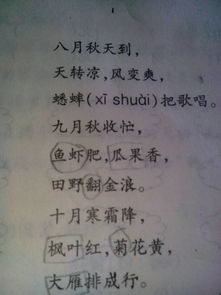 八月秋天到，
天转凉，风变爽，
蟋蟀(xī shuài)把歌唱。
九月秋收忙，
鱼虾肥，瓜果香，
田野翻金浪。
十月寒霜降，
枫叶红，菊花黄，
大雁排成行。